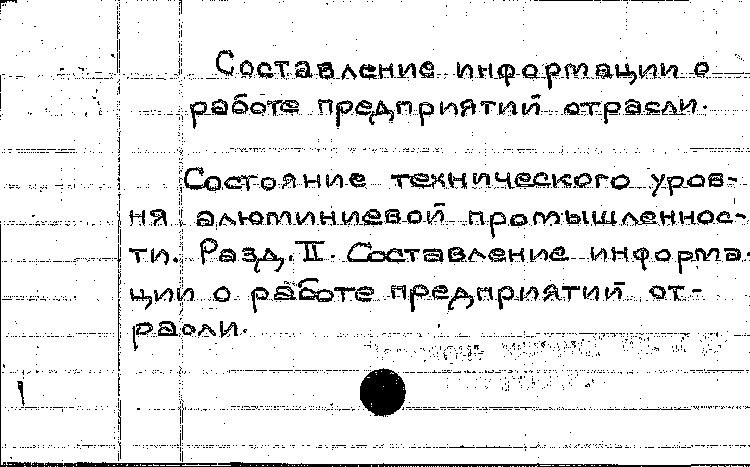 Составление информации о
работе предприятий отрасли.
Состояние технического уров-
ня алюминиевой промышленнос-
ти. Разд. II. Составление информа-
ции о работе предприятий от-
расли.